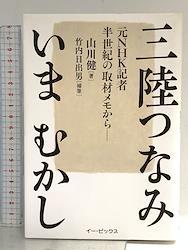 三陸つなみ
いま むかし
元NHK記者
半世紀の取材メモから―
山川健[著]
竹内日出男[補筆]
イー・ピックス